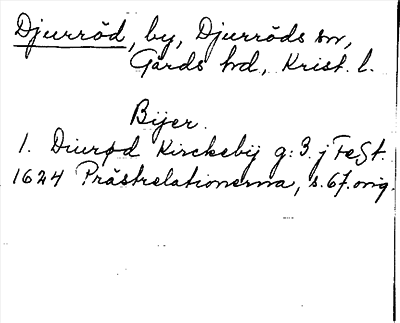 Djurröd, by, Djurröds sn,
Gärds hd, Krist. l.
Bijer.
1. Diurød Kirckebij g: 3. j FeSt.
1624 Prästrelationerna, s. 67. orig.